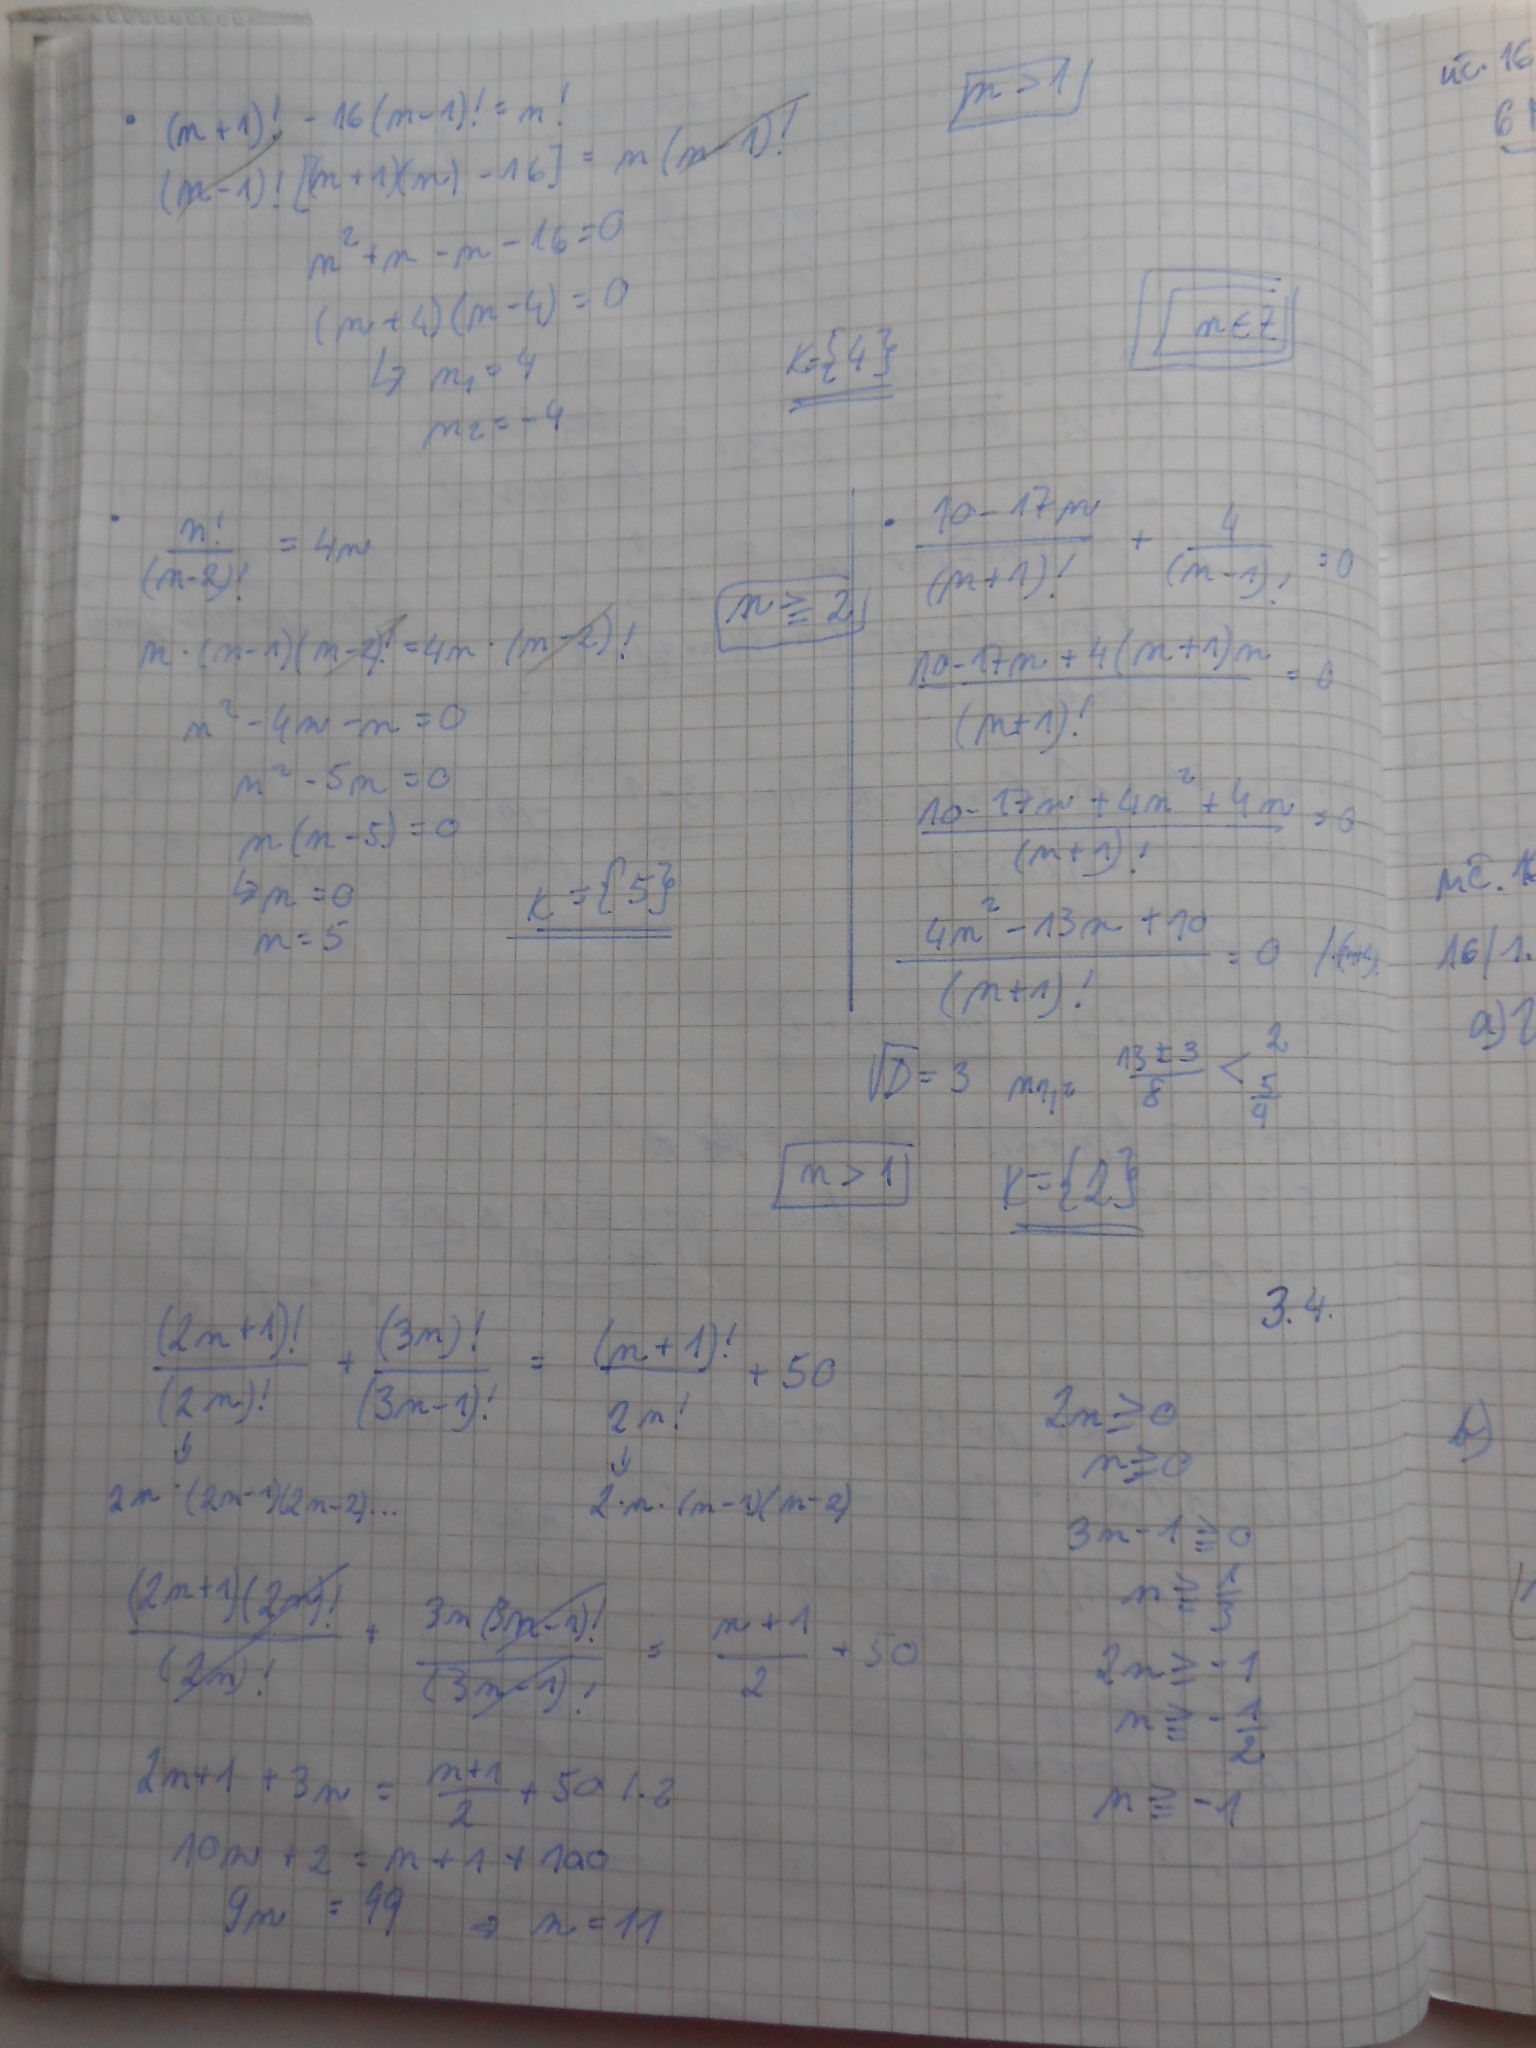 • (n+1)! - 16(n-1)! = n!
n > 1
(n-1)! [(n+1)(n) - 16] = n(n-1)!
n² + n - n - 16 = 0
(n+4)(n-4) = 0
n ∈ Z
↳ n₁ = 4
K = {4}
n₂ = -4
• n!/(n-2)! = 4n
n ≧ 2
n · (n-1)(n-2)! = 4n · (n-2)!
n² - 4n - n = 0
n² - 5n = 0
n(n-5) = 0
↳ n = 0
n = 5
K = {5}
• (10-17n)/(n+1)! + 4/(n-1)! = 0
(10-17n+4(n+1)n)/(n+1)! = 0
(10-17n+4n²+4n)/(n+1)! = 0
(4n²-13n+10)/(n+1)! = 0
√D = 3 n₁,₂ (13±3)/8 < 2
5/4
n > 1
K = {2}
3.4.
(2n+1)!/(2n)! + (3n)!/(3n-1)! = (n+1)!/2n! + 50
↓ ↓
2n · (2n-1)(2n-2)... 2·n·(n-1)(n-2)
(2n+1)(2n)!/(2n)! + 3n(3n-1)!/(3n-1)! = (n+1)/2 + 50
2n+1 + 3n = (n+1)/2 + 50 /·2
10n + 2 = n + 1 + 100
9n = 99 ⇒ n = 11
2n ≧ 0
n ≧ 0
3n-1 ≧ 0
n ≧ 1/3
2n ≧ -1
n ≧ -1/2
n ≧ -1
16/1.
a)
b)